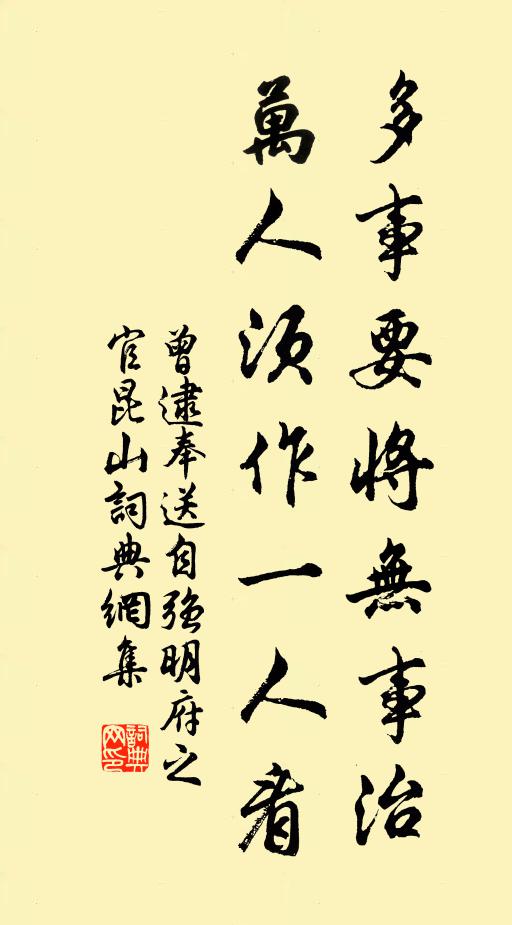 多事要將無事治
萬人須作一人看
曾逮奉送自強明府之
官昆山詞典網集
詞典
网印